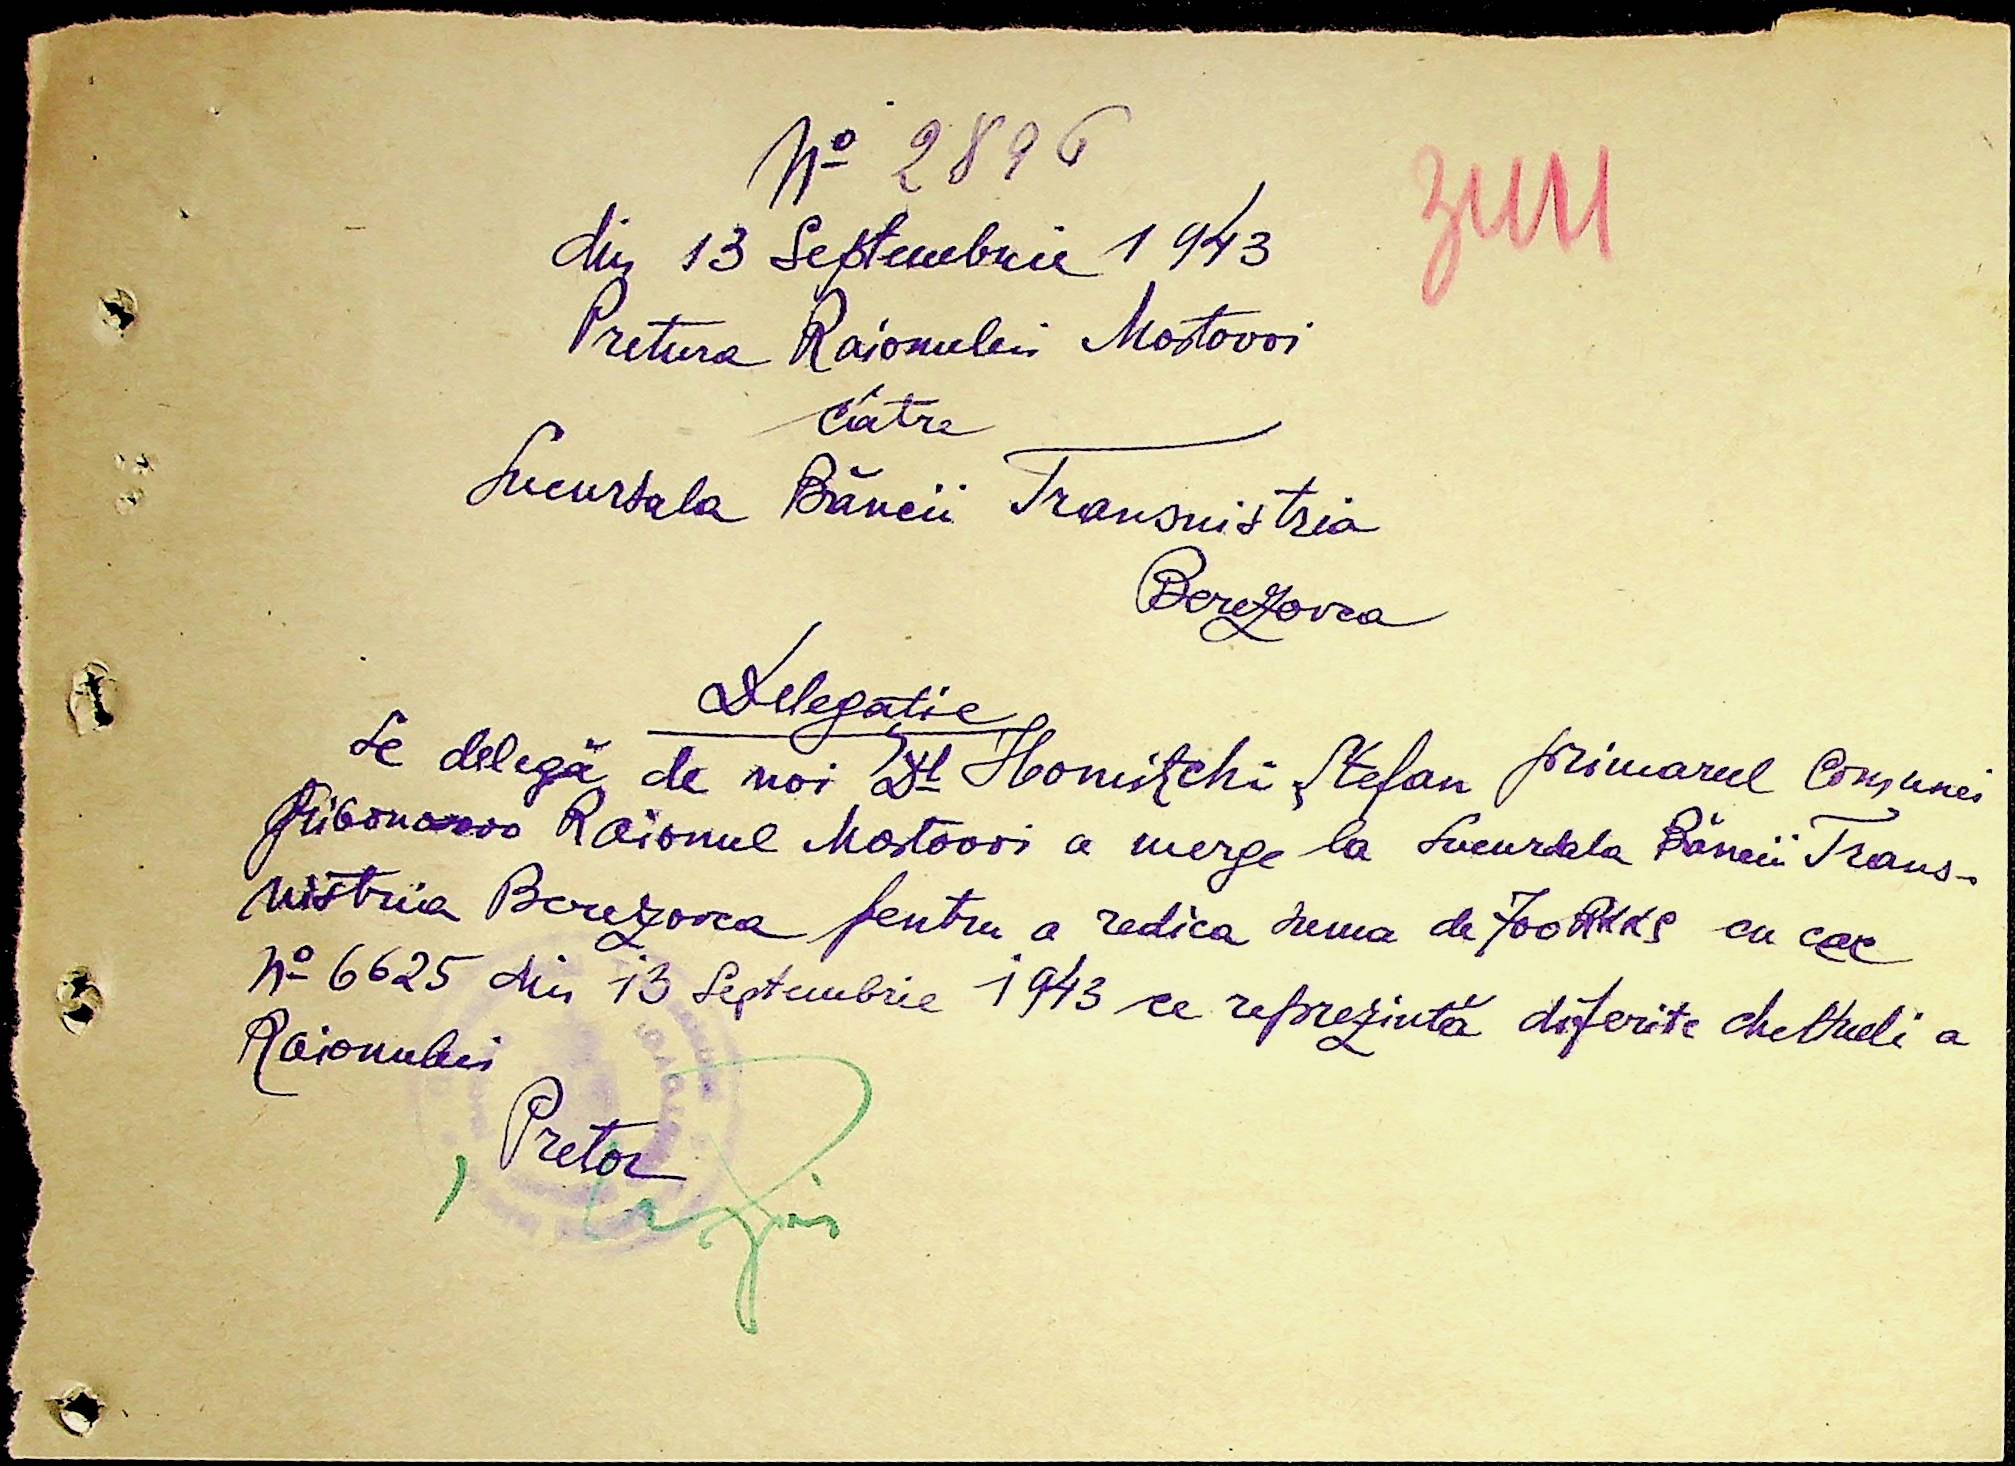 Nº 2896
din 13 Septembrie 1943
Pretura Raionului Mostovoi
Către
Sucursala Băncii Transnistria
Berezovca
Delegație
Se delegă de noi Dl Homițchi Ștefan primarul Comunei
Raionul Mostovoi a merge la Sucursala Băncii Trans-
nistria Berezovca pentru a redica suma de 700 RKKS cu cec
Nº 6625 din 13 Septembrie 1943 ce reprezintă diferite cheltueli a
Raionului
Pretor